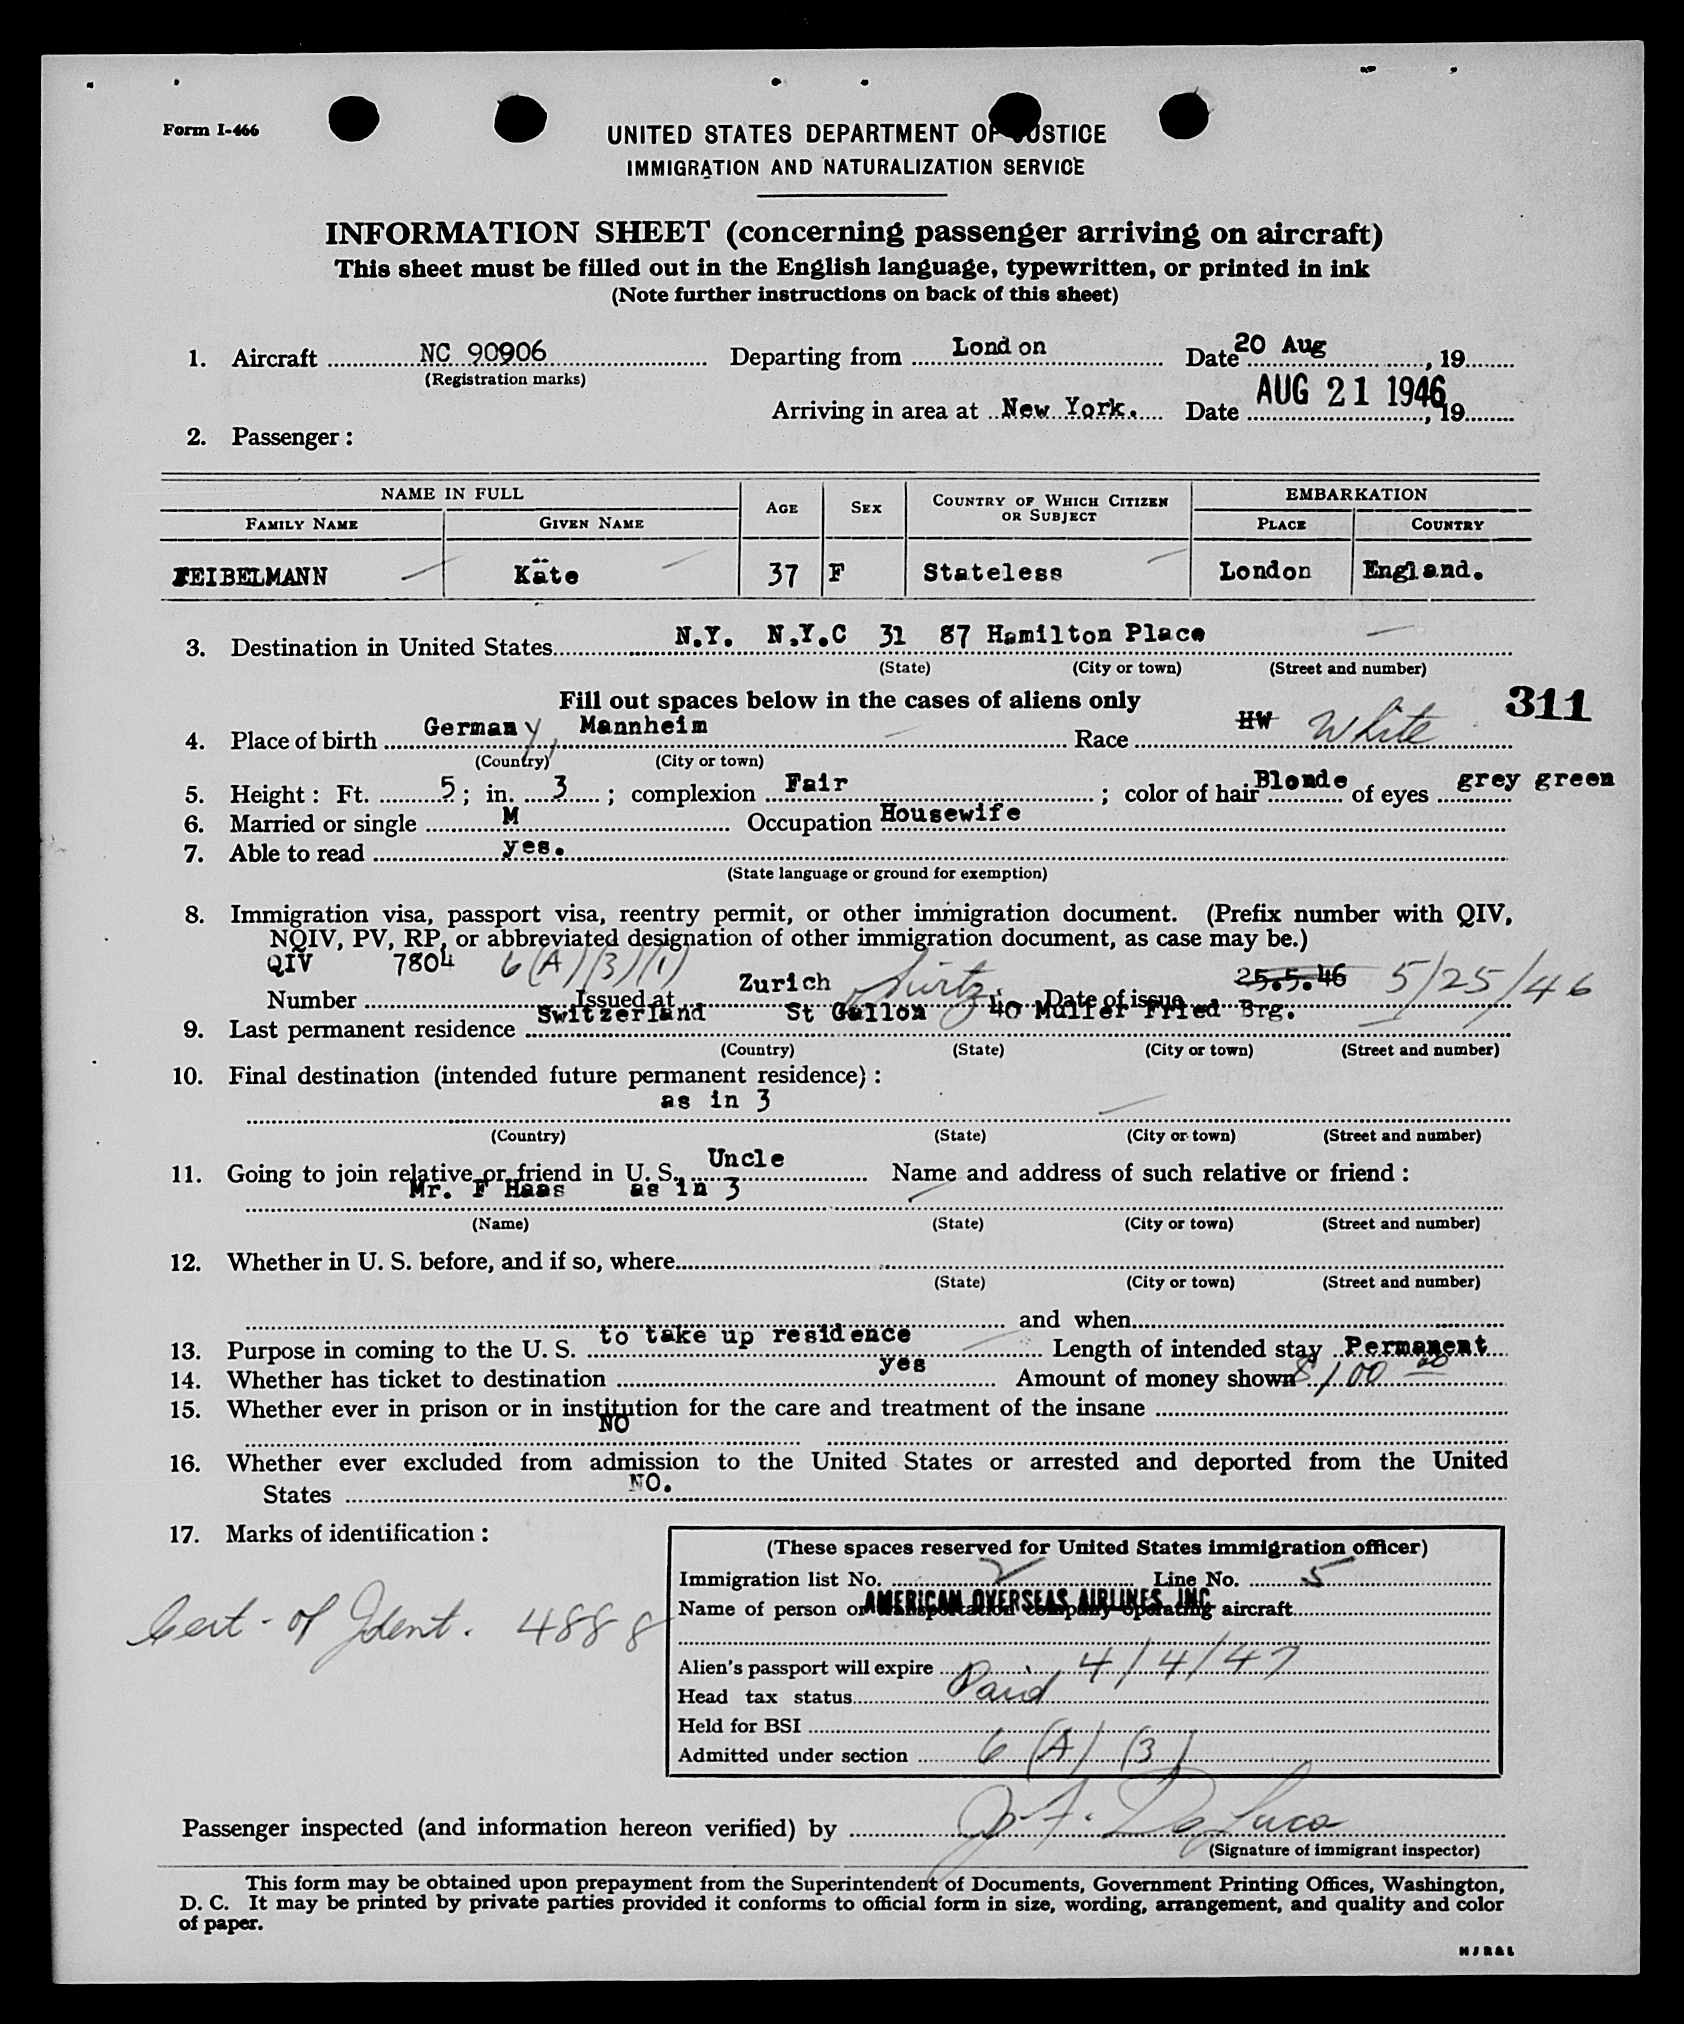 Form I-466
UNITED STATES DEPARTMENT OF JUSTICE
IMMIGRATION AND NATURALIZATION SERVICE
INFORMATION SHEET (concerning passenger arriving on aircraft)
This sheet must be filled out in the English language, typewritten, or printed in ink
(Note further instructions on back of this sheet)
1. Aircraft NC 90906 Departing from Lond on Date 20 Aug, 19
(Registration marks)
Arriving in area at New York. Date AUG 21 1946, 19
2. Passenger:
NAME IN FULL AGE SEX COUNTRY OF WHICH CITIZEN OR SUBJECT EMBARKATION
FAMILY NAME GIVEN NAME PLACE COUNTRY
FEIBELMANN Käte 37 F Stateless London England.
3. Destination in United States N.Y. N.Y.C 31 87 Hamilton Place
(State) (City or town) (Street and number)
Fill out spaces below in the cases of aliens only 311
4. Place of birth Germany, Mannheim Race HW White
(Country) (City or town)
5. Height: Ft. 5; in. 3; complexion Fair; color of hair Blonde of eyes grey green
6. Married or single M Occupation Housewife
7. Able to read yes.
(State language or ground for exemption)
8. Immigration visa, passport visa, reentry permit, or other immigration document. (Prefix number with QIV,
NQIV, PV, RP, or abbreviated designation of other immigration document, as case may be.)
QIV 7804 6(A)(3)(1)
Number Issued at Zurich Date of issue 25.5.46 5/25/46
9. Last permanent residence Switzerland St Gallon 40 Muller Fried Brg.
(Country) (State) (City or town) (Street and number)
10. Final destination (intended future permanent residence):
as in 3
(Country) (State) (City or town) (Street and number)
11. Going to join relative or friend in U. S. Uncle Name and address of such relative or friend:
Mr. F Haas as in 3
(Name) (State) (City or town) (Street and number)
12. Whether in U. S. before, and if so, where
(State) (City or town) (Street and number)
and when
13. Purpose in coming to the U. S. to take up residence Length of intended stay Permanent
14. Whether has ticket to destination yes Amount of money shown $100 00
15. Whether ever in prison or in institution for the care and treatment of the insane
NO
16. Whether ever excluded from admission to the United States or arrested and deported from the United
States NO.
17. Marks of identification:
Cert - of Ident. 4888
(These spaces reserved for United States immigration officer)
Immigration list No. 2 Line No. 5
Name of person or transportation company operating aircraft AMERICAN OVERSEAS AIRLINES, INC.
Alien's passport will expire 4/4/47
Head tax status Paid
Held for BSI
Admitted under section 6(A)(3)
Passenger inspected (and information hereon verified) by J. F. DeLuca
(Signature of immigrant inspector)
This form may be obtained upon prepayment from the Superintendent of Documents, Government Printing Offices, Washington,
D. C. It may be printed by private parties provided it conforms to official form in size, wording, arrangement, and quality and color
of paper.